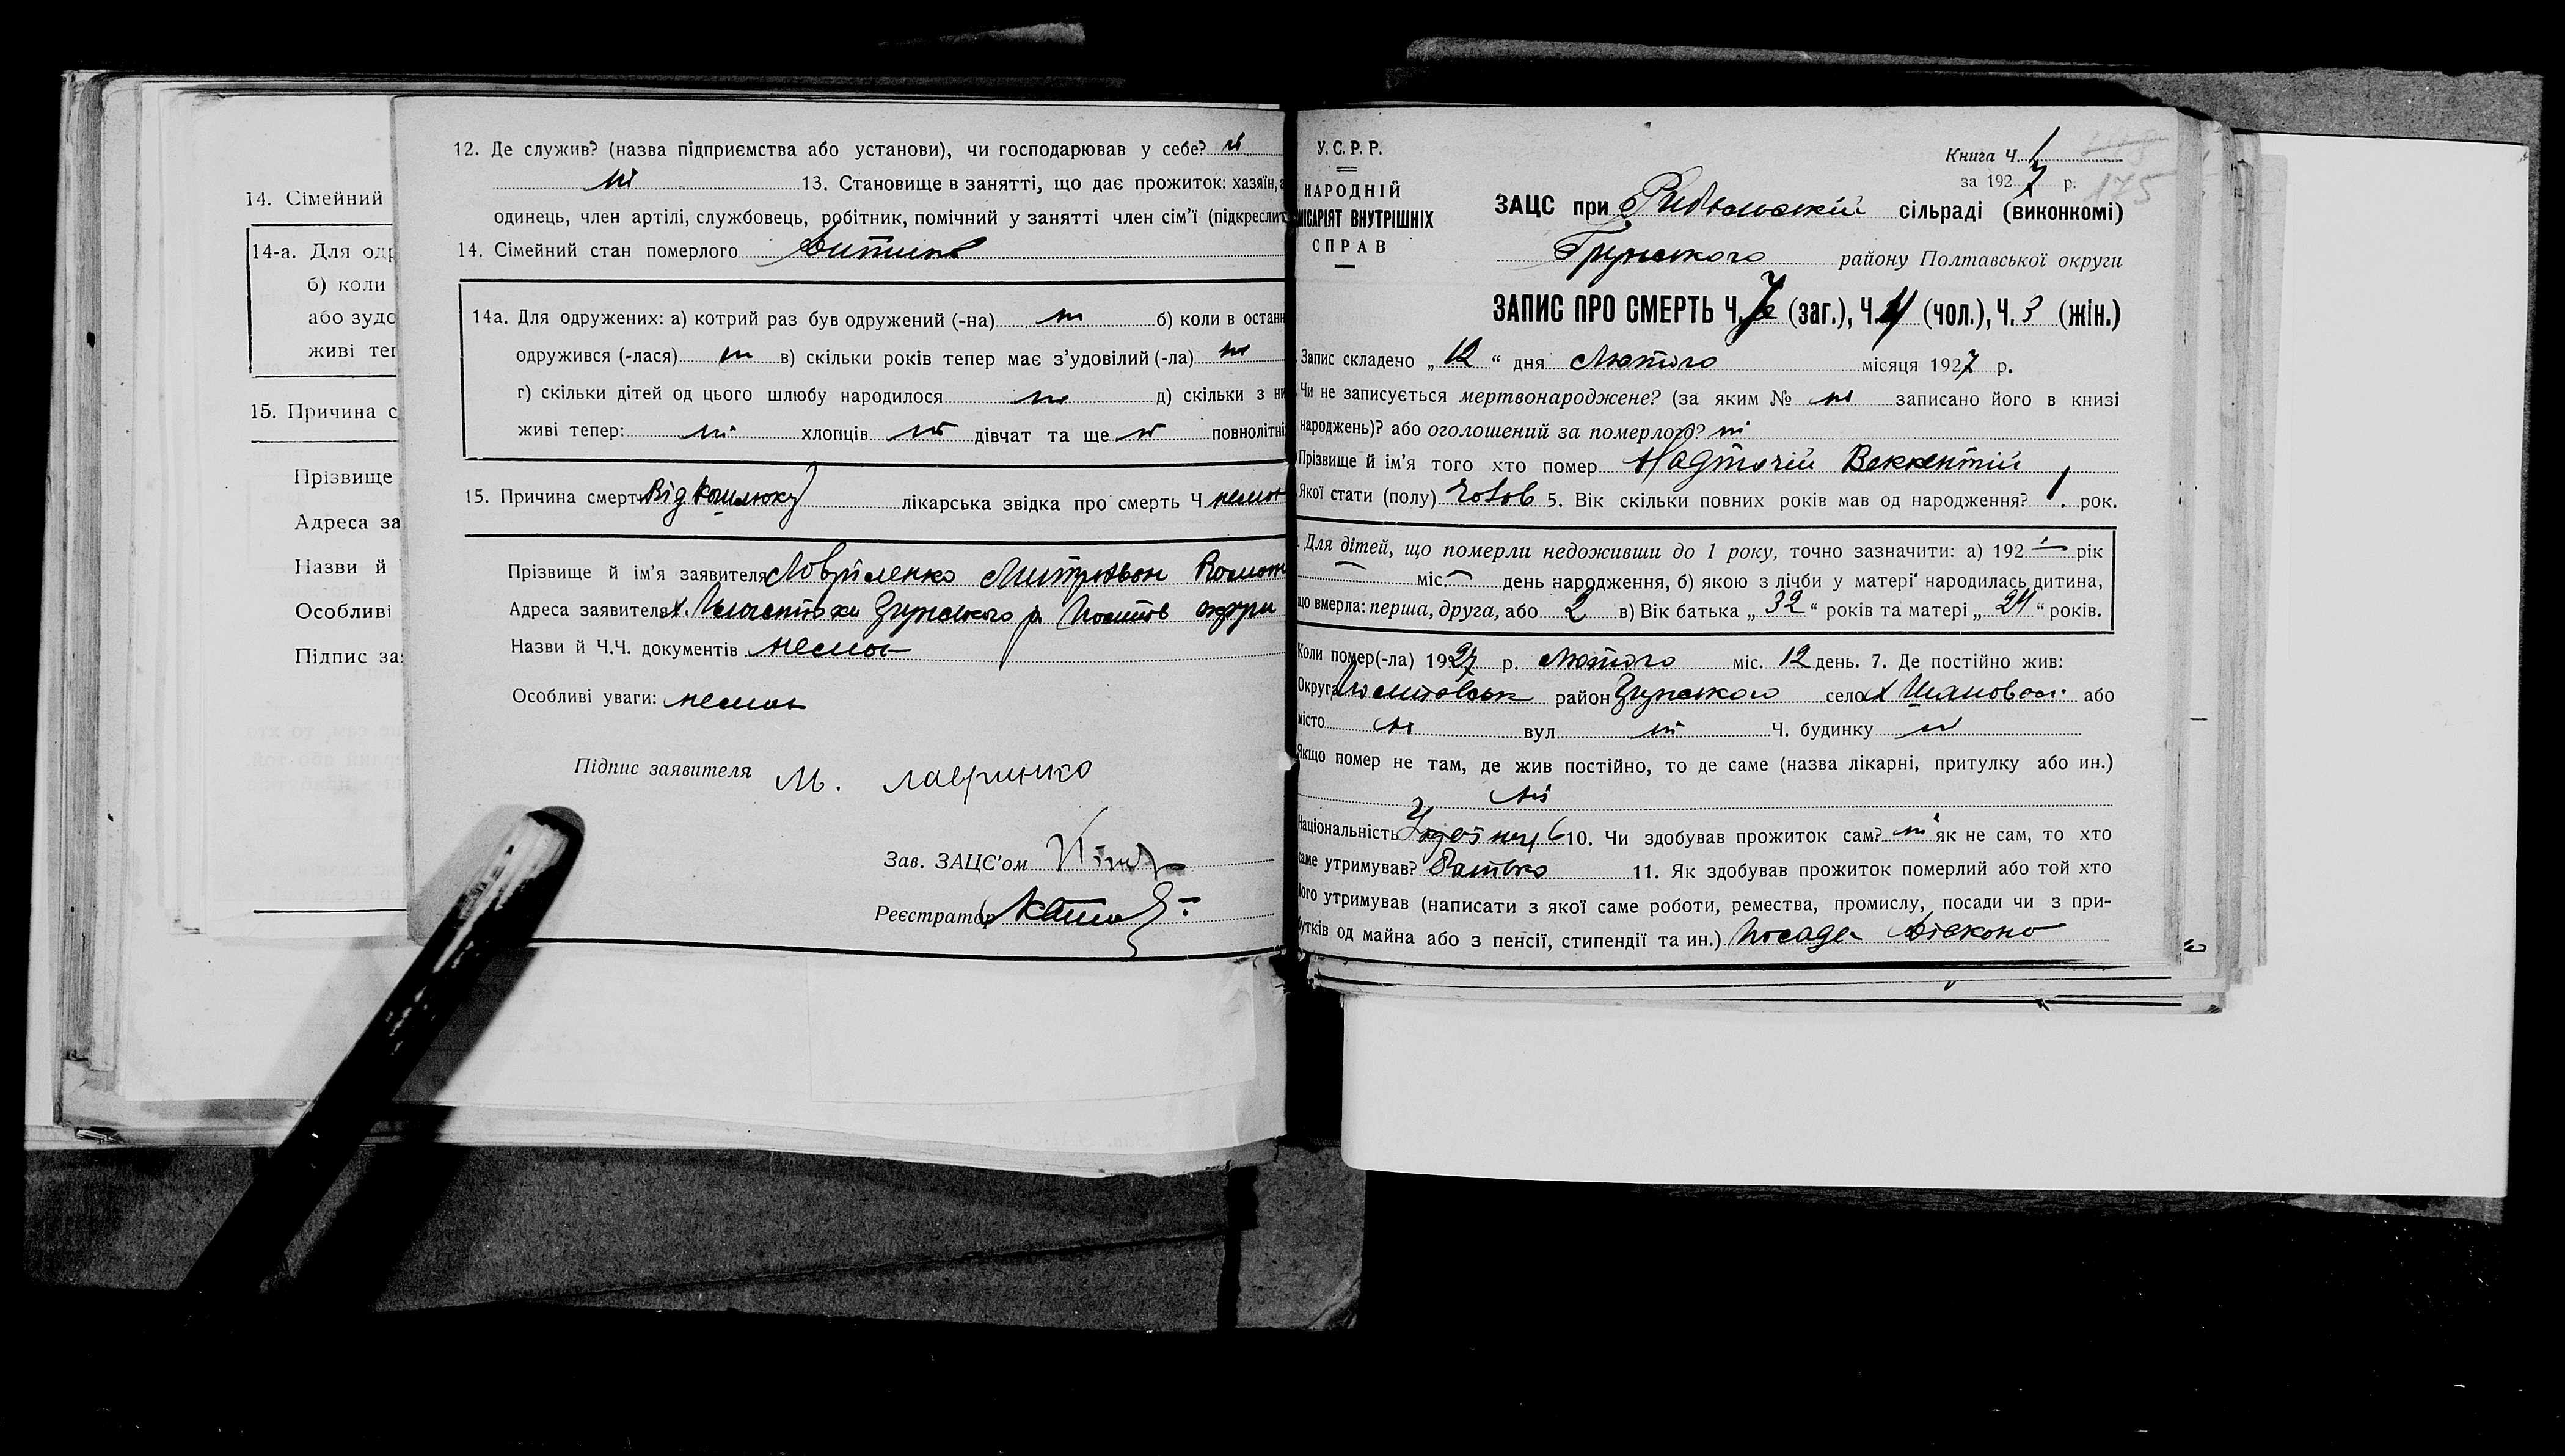 14. Сімейний
14-а. Для одр
б) коли
або зудо
живі теп
15. Причина с
Прізвище
Адреса за
Назви й
Особливі
Підпис за
12. Де служив? (назва підприємства або установи), чи господарював у себе? ні
ні 13. Становище в занятті, що дає прожиток: хазяїн,
одинець, член артілі, службовець, робітник, помічний у занятті член сім'ї (підкреслит
14. Сімейний стан померлого
14а. Для одружених: а) котрий раз був одружений (-на) ні б) коли в останн
одружився (-лася) ні в) скільки років тепер має з'удовілий (-ла) ні
г) скільки дітей од цього шлюбу народилося ні д) скільки з ни
живі тепер: ні хлопців ні дівчат та ще ні повнолітні
15. Причина смерт Від кашлюку лікарська звідка про смерть Ч немон
Прізвище й ім'я заявителя
Адреса заявителя Зіньського р. округи
Назви й Ч.Ч. документів немає
Особливі уваги: немає
Підпис заявителя М. лавринко
Зав. ЗАЦС'ом
Реєстратор
У.С.Р.Р.
НАРОДНІЙ
МІСАРІЯТ ВНУТРІШНІХ
СПРАВ
Книга Ч. 1
за 1927 р.
175
ЗАЦС при сільраді (виконкомі)
Грунського району Полтавської округи
ЗАПИС ПРО СМЕРТЬ Ч. 7 (заг.), Ч. 4 (чол.), Ч. 3 (жін.)
Запис складено „12“ дня Лютого місяця 1927 р.
Чи не записується мертвонароджене? (за яким № ні записано його в книзі
народжень)? або оголошений за померлого? ні
Прізвище й ім'я того хто помер Надточій Викентій
Якої стати (полу) чолов 5. Вік скільки повних років мав од народження? 1 рок.
Для дітей, що померли недоживши до 1 року, точно зазначити: а) 192 — рік
— міс. — день народження, б) якою з лічби у матері народилась дитина,
що вмерла: перша, друга, або 2 в) Вік батька „32“ років та матері „24“ років.
Коли помер(-ла) 1927 р. Лютого міс. 12 день. 7. Де постійно жив:
Округа район село або
місто ні вул ні Ч. будинку ні
Якщо помер не там, де жив постійно, то де саме (назва лікарні, притулку або ин.)
ні
Національність 10. Чи здобував прожиток сам? ні як не сам, то хто
саме утримував? Батько 11. Як здобував прожиток померлий або той хто
його утримував (написати з якої саме роботи, ремества, промислу, посади чи з при-
бутків од майна або з пенсії, стипендії та ин.) посада